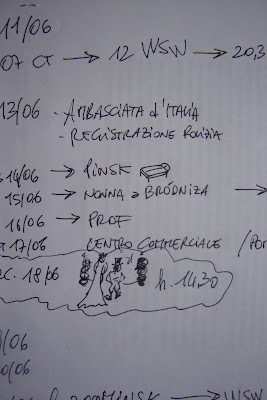 11/06
07 CT → 12 WSW → 20,3
13/06 - AMBASCIATA d'ITALIA
- REGISTRAZIONE POLIZIA
14/06 → PINSK
15/06 → NONNA a BRODNIZA →
16/06 → PROF
17/06 CENTRO COMMERCIALE
18/06 h. 14.30
/06
20/06
MINSK → WSW